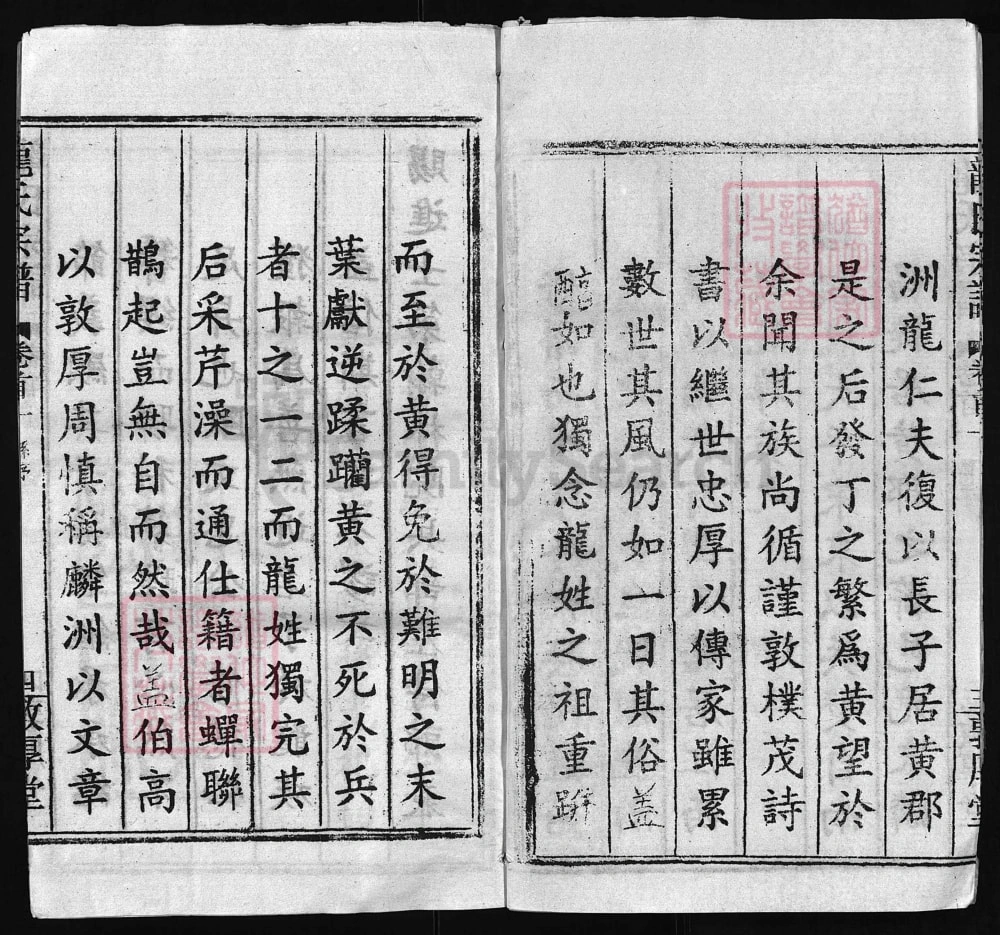 洲龍仁夫復以長子居黃郡
是之后發丁之繁為黃望於
余聞其族尚循謹敦樸茂詩
書以繼世忠厚以傳家雖累
數世其風仍如一日其俗盖
醕如也獨念龍姓之祖重跰
龍氏宗譜 卷首一
而至於黃得免於難明之末
葉獻逆蹂躪黃之不死於兵
者十之一二而龍姓獨完其
后采芹澡而通仕籍者蟬聯
鵲起豈無自而然哉盖伯高
以敦厚周慎稱麟洲以文章
龍氏宗譜 卷首一 四敦厚堂